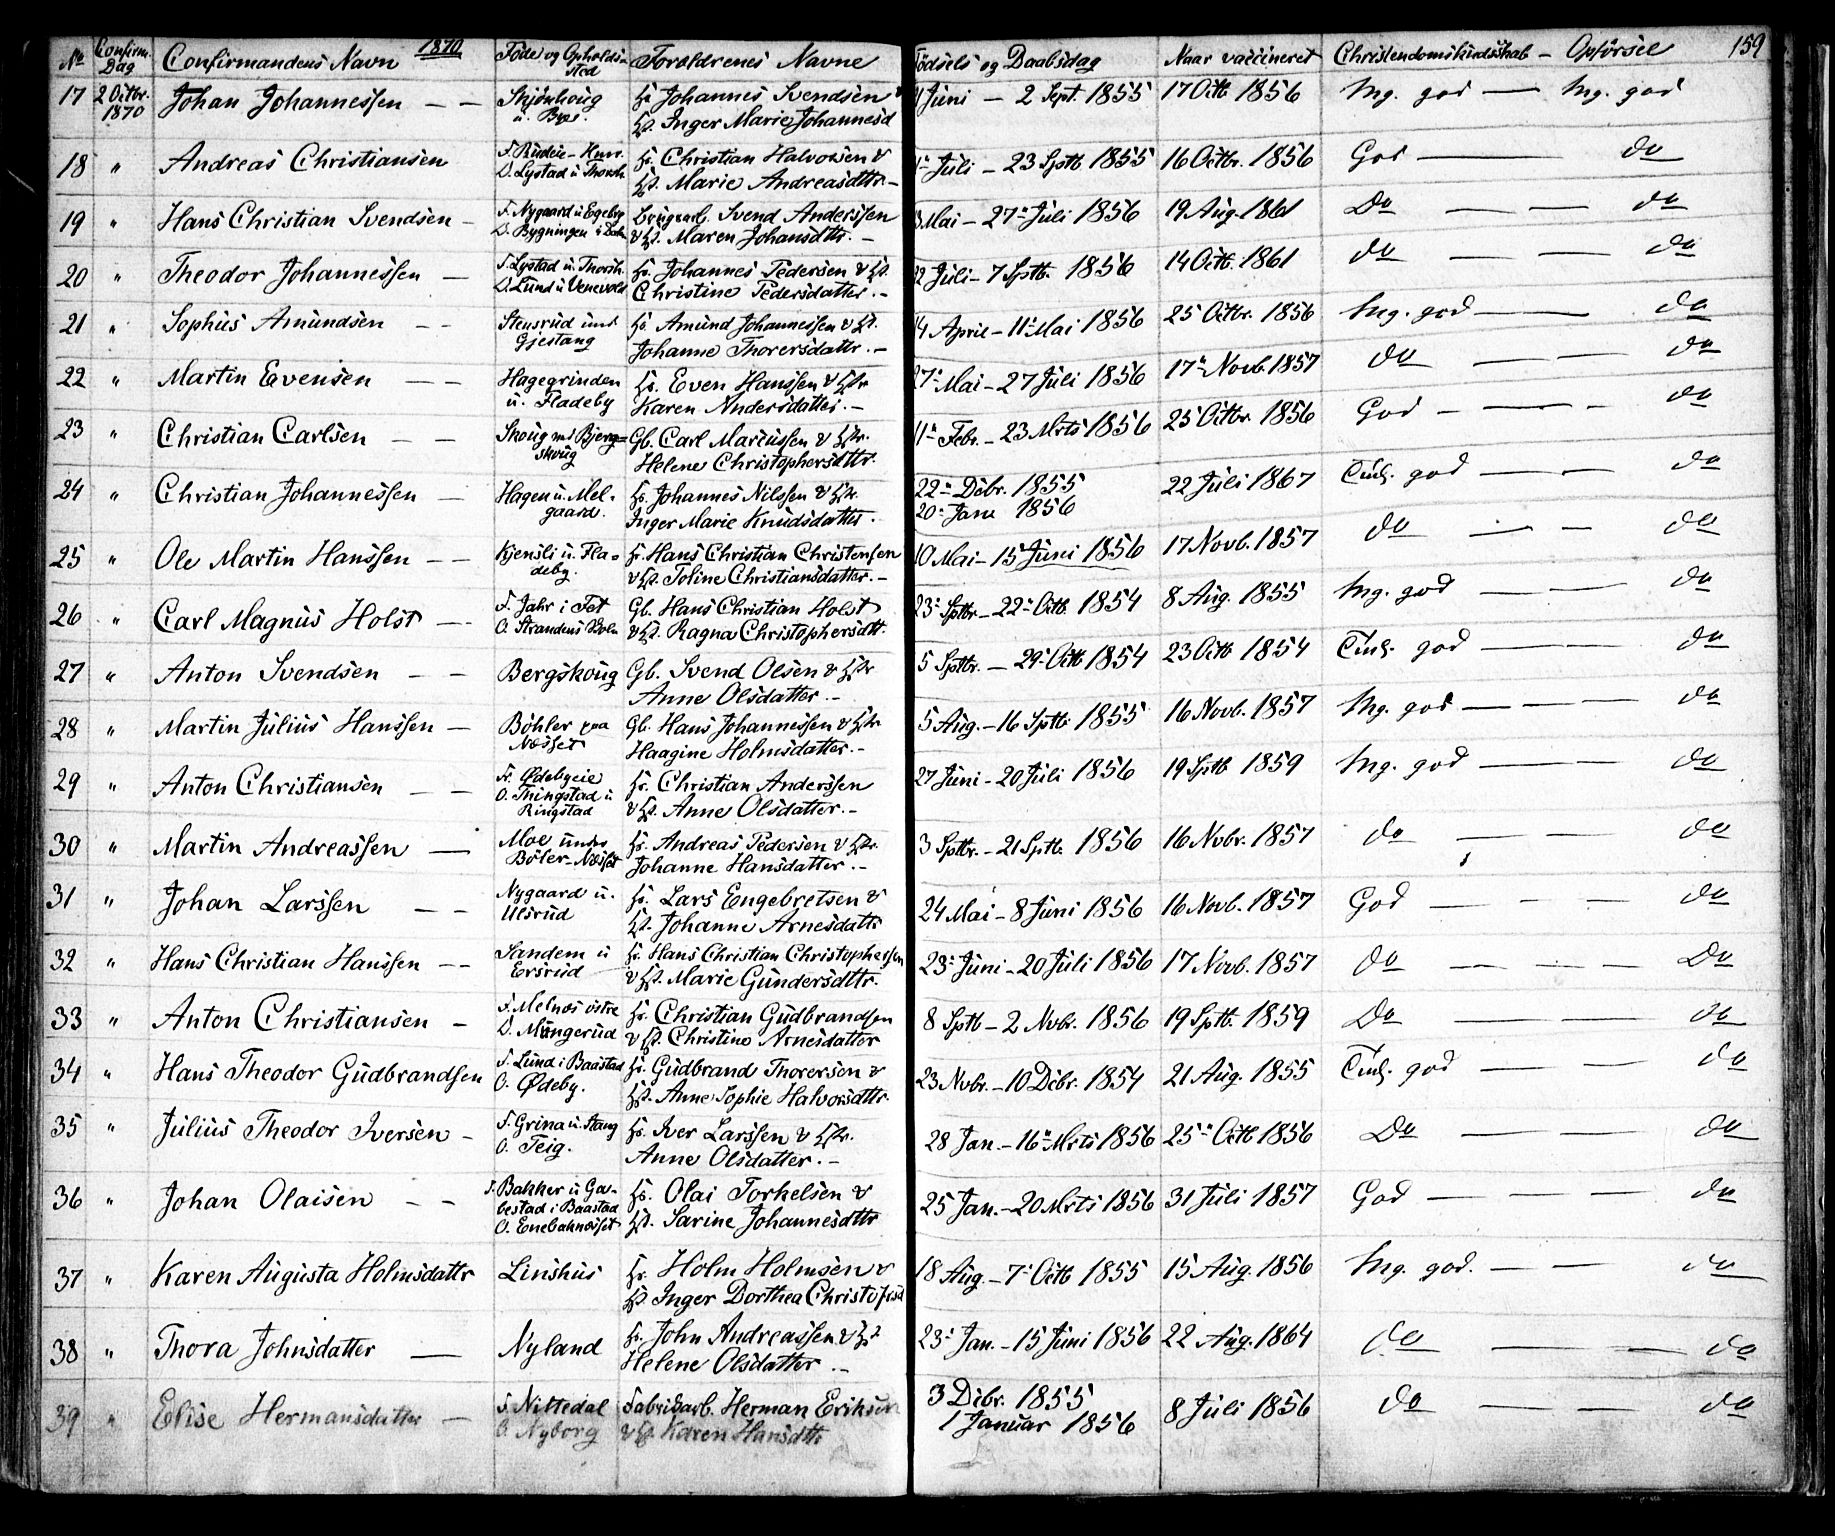 No Confirm. Dag Confirmandens Navn 1870 Føde og Opholds-sted Forældrenes Navne Fødsels og Daabsdag Naar vaccineret Christendomskundskab - Opførsel 159
17 2 Octbr. 1870 Johan Johannessen — — Skjønhoug u. Bye. Hs. Johannes Svendsen & Hst. Inger Marie Johannesd Juni — 2 Sept. 1855 17 Octb 1856 Mg. god — Mg. god
18 " Andreas Christiansen F. O. Lystad u Thorsh. Hs. Christian Halvorsen & Hst. Marie Andreasdttr. — Juli — 23 Sptb 1855 16 Octbr. 1856 God — do
19 " Hans Christian Svendsen — F. Nygaard u Egeberg O. Bygningen i Svend Anderssen & Hst. Maren Johansdttr. — Mai — 27 Juli 1856 19 Aug. 1861 Do — — do
20 " Theodor Johannessen — F. Lystad u. Thorsh. O. Lund u Venevold Hs. Johannes Pedersen & Hst. Christine Pedersdatter. — 22 Juli — 7 Sptb. 1856 14 Octb. 1861 do — — do
21 " Sophus Amundsen — — Stensrud und Gjestang Hs. Amund Johannessen & Hst. Johanne Thorersdatter. — 14 April — 11 Mai 1856 25 Octbr. 1856 Mg. god — do
22 " Martin Evensen — — Hagegrinden u. Fladeby Hs. Even Hanssen & Hstr Karen Andersdatter. — 27 Mai — 27 Juli 1856 17 Novb. 1857 do — — do
23 " Christian Carlsen — — Skoug md Bjerg=skoug Gb. Carl Marcussen & Hstr. Helene Christophersdttr. 11 Febr. — 23 Mrts 1856 25 Octbr. 1856 God — — do
24 " Christian Johannessen — Hagen u. Mel-gaard. Hs. Johannes Nilssen & Hstr. Inger Marie Knudsdatter. 22 Debr. 1855 20 Janr 1856 22 Juli 1867 Tml. god — — do
25 " Ole Martin Hanssen — — Kjensli u. Fla-deby. Hs. Hans Christian Christensen & Hst. Toline Christiansdatter. — 10 Mai — 15 Juni 1856 17 Novb. 1857 do — — do
26 " Carl Magnus Holst — — F. Jahr i Fet O. Strandens Gb. Hans Christian Holst & Hst. Ragna Christophersdtt. 23 Sptbr. — 22 Octb. 1854 8 Aug. 1855 Mg. god — — do
27 " Anton Svendsen — — Bergskoug Gb. Svend Olsen & Hstr Anne Olsdatter. — 5 Sptbr. — 29 Octb 1854 23 Octb 1854 Tml. god — — do
28 " Martin Julius Hanssen — Bøhler paa Næsset Gb. Hans Johannessen & Hstr Haagine Holmsdatter. — 5 Aug. — 16 Sptb. 1855 16 Novb. 1857 Mg. god — — — do
29 " Anton Christiansen — — F. Ødebyeie O. Thingstad u Ringstad Hs. Christian Anderssen & Hst. Anne Olsdatter. — 27 Juni — 20 Juli 1856 19 Sptb 1859 Mg. god — — do
30 " Martin Andreassen — Moe under Bøler Næsset Hs. Andreas Pedersen & Hstr. Johanne Hansdatter. — 3 Sptbr. — 21 Sptb. 1856 16 Novbr. 1857 do — — do
31 " Johan Larssen — — Nygaard u. Ulsrud Hs. Lars Engebretsen & Hst. Johanne Arnesdattr 24 Mai — 8 Juni 1856 16 Novb. 1857 God — — — do
32 " Hans Christian Hanssen — — Sandem u Ersrud Hs. Hans Christian Christophersen & Hst. Marie Gundersdttr. 23 Juni — 20 Juli 1856 17 Novb. 1857 do — — — Do
33 " Anton Christiansen — F. Melnæs østre O. Mangerud Hs. Christian Gudbrandsen & Hst. Christine Arnesdatter 8 Sptb — 2 Novbr. 1856 19 Sptb. 1859 Do — — do
34 " Hans Theodor Gudbrandsen F. Lund i Baastad O. Ødeby. Hs. Gudbrand Thorersen & Hst. Anne Sophie Halvorsdttr. 23 Novbr. — 10 Debr. 1854 21 Aug. 1855 Tml. god — — do
35 " Julius Theodor Iversen — F. Grina u. Stang O. Teig. Hs. Iver Larssen & Hstr. Anne Olsdatter. — 28 Jan. — 16 Mrts 1856 25 Octb 1856 Do — — do
36 " Johan Olaisen — — F. Bakker u Ga-bestad i Baastad O. Enebaknæsset Hs. Olai Torkelsen & Hst. Sarine Johannesdttr 25 Jan. — 20 Mrts 1856 31 Juli 1857 God — — — do
37 " Karen Augusta Holmsdattr Linshus Hs. Holm Holmsen & Hst. Inger Dorthea Christofersd 18 Aug. — 7 Octb 1855 15 Aug. 1856 Mg. god. — — do
38 " Thora Johnsdatter — Nyland Hs. John Andreassen & Hst Helene Olsdatter. — 23 Jan. — 15 Juni 1856 22 Aug. 1864 do — — do
39 " Elise Hermansdatter — F. Nittedal O. Nyborg Fabrikarb. Herman Eriksen & Hst. Karen Hansdttr 3 Debr. 1855 1 Januar 1856 8 Juli 1856 do — — do